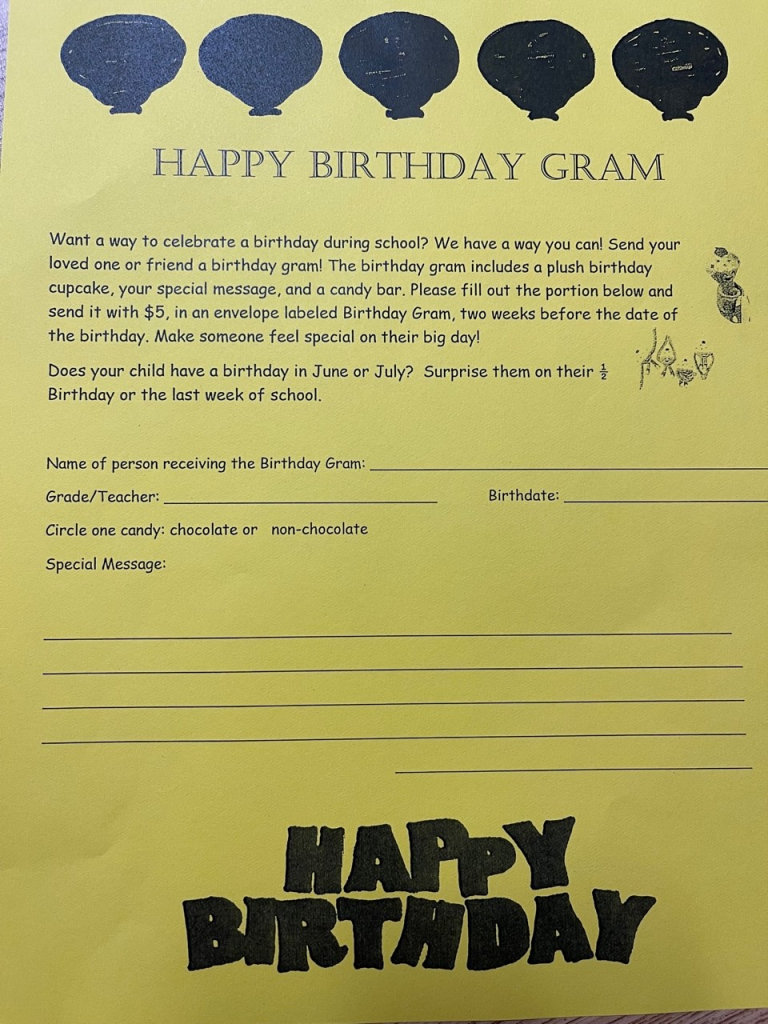 HAPPY BIRTHDAY GRAM
Want a way to celebrate a birthday during school? We have a way you can! Send your
loved one or friend a birthday gram! The birthday gram includes a plush birthday
cupcake, your special message, and a candy bar. Please fill out the portion below and
send it with $5, in an envelope labeled Birthday Gram, two weeks before the date of
the birthday. Make someone feel special on their big day!
Does your child have a birthday in June or July? Surprise them on their ½
Birthday or the last week of school.
Name of person receiving the Birthday Gram:
Grade/Teacher: Birthdate:
Circle one candy: chocolate or non-chocolate
Special Message:
HAPPY
BIRTHDAY